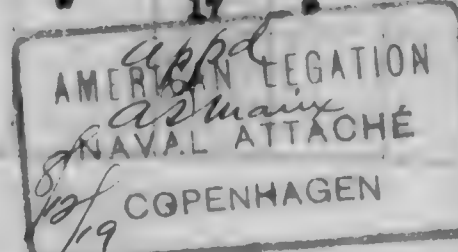 appd
AMERICAN LEGATION
NAVAL ATTACHÉ
8/12/19
COPENHAGEN